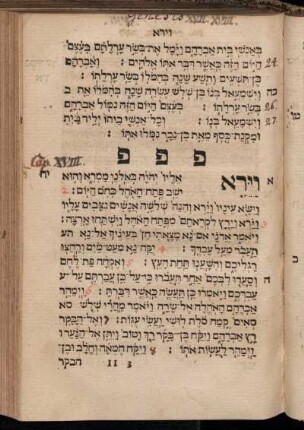 Genesis XVII. XVIII.
וירא
באנשי בית אברהם וימל את בשר ערלתם בעצם
היום הזה כאשר דבר אתו אלהים : ואברהם
24.
בן תשעים ותשע שנה בהמלו בשר ערלתו :
וישמעאל בנו בן שלש עשרה שנה בהמלו את
כה
בשר ערלתו : בעצם היום הזה נמול אברהם
26.
וישמעאל בנו : וכל אנשי ביתו יליד בית
27.
ומקנת כסף מאת בן נכר נמלו אתו :
פ פ פ
Cap. XVIII.
יח
וירא אליו יהוה באלני ממרא והוא
א
ישב פתח האהל כחם היום :
וישא עיניו וירא והנה שלשה אנשים נצבים עליו
וירא וירץ לקראתם מפתח האהל וישתחו ארצה :
ויאמר אדני אם נא מצאתי חן בעיניך אל נא
תעבר מעל עבדך : יקח נא מעט מים ורחצו
רגליכם והשענו תחת העץ : ואקחה פת לחם
ה
וסעדו לבכם אחר תעברו כי על כן עברתם על
עבדכם ויאמרו כן תעשה כאשר דברת : וימהר
אברהם האהלה אל שרה ויאמר מהרי שלש סאים
קמח סלת לושי ועשי עגות : ואל הבקר
רץ אברהם ויקח בן בקר רך וטוב ויתן אל הנער
וימהר לעשות אתו : ויקח חמאה וחלב ובן
II 3
הבקר